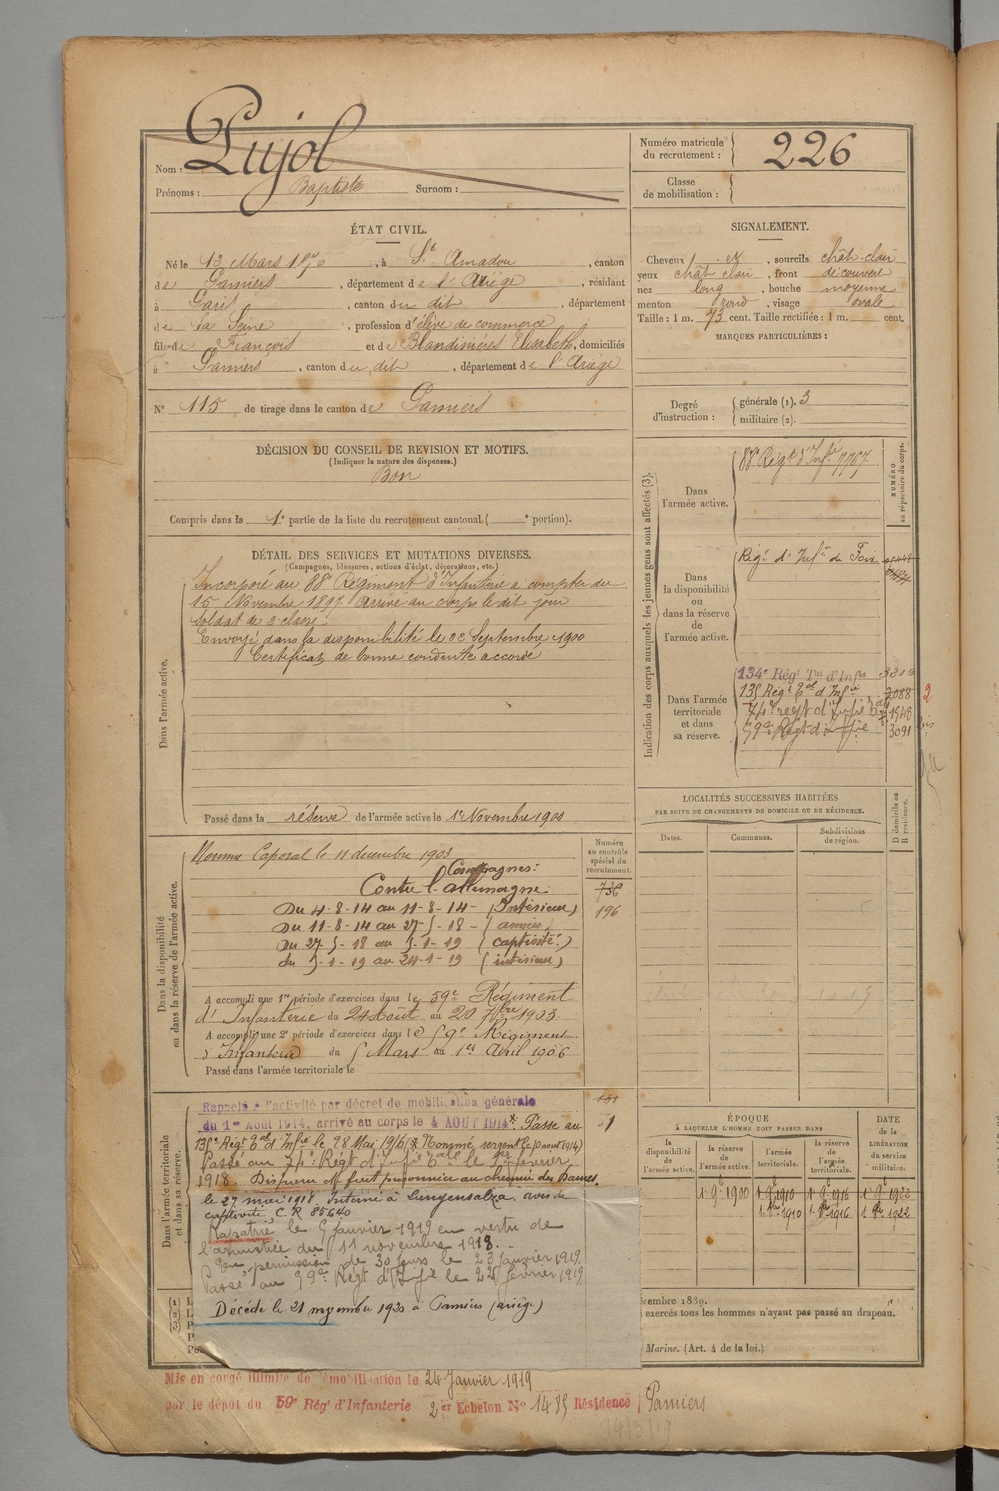 Nom : Pujol
Prénoms : Baptiste Surnom :
Numéro matricule du recrutement : 226
Classe de mobilisation :
ÉTAT CIVIL.
Né le 13 Mars 1876, à St Amadou, canton
de Pamiers, département de l'Ariège, résidant
à Paris, canton du dit, département
de la Seine, profession d'élève de commerce
fils de François et de Blandinières Elisabeth, domiciliés
à Pamiers, canton du dit, département de l'Ariège
N° 115 de tirage dans le canton de Pamiers
SIGNALEMENT.
Cheveux, sourcils chât-clair
yeux chât clair, front découvert
nez long, bouche moyenne
menton rond, visage ovale
Taille : 1 m. 73 cent. Taille rectifiée : 1 m. cent.
MARQUES PARTICULIÈRES :
Degré d'instruction : générale (1). 3
militaire (2).
DÉCISION DU CONSEIL DE REVISION ET MOTIFS.
(Indiquer la nature des dispenses.)
Bon
Compris dans la 1e partie de la liste du recrutement cantonal ( e portion).
DÉTAIL DES SERVICES ET MUTATIONS DIVERSES.
(Campagnes, blessures, actions d'éclat, décorations, etc.)
Dans l'armée active.
Incorporé au 88e Régiment d'Infanterie a compter du
15 Novembre 1897. arrivé au corps le dit jour
soldat de 2e classe.
Envoyé dans la disponibilité le 22 Septembre 1900
Certificat de bonne conduite accordé
Passé dans la réserve de l'armée active le 1er Novembre 1900
Indication des corps auxquels les jeunes gens sont affectés (3).
NUMÉRO au répertoire du corps.
Dans l'armée active.
88e Régt d'Infie 7767
Dans la disponibilité ou dans la réserve de l'armée active.
Régt d'Infie de Foix
Dans l'armée territoriale et dans sa réserve.
134e Régt Tal d'Infie 3219
135 Régt Tal d'Infie 7088
74e regt d'Infie Tal 1548
59e Régt d'Infie 3091
2
LOCALITÉS SUCCESSIVES HABITÉES
PAR SUITE DE CHANGEMENTS DE DOMICILE OU DE RÉSIDENCE.
Dates. Communes. Subdivisions de région.
D domicile ou R résidence.
Dans la disponibilité ou dans la réserve de l'armée active.
Numéro au contrôle spécial du recrutement.
736
196
Nommé Caporal le 11 décembre 1903
Campagnes :
Contre l'allemagne
Du 4-8-14 au 11-8-14 - (Intérieur)
Du 11-8-14 au 27-5-18 - (armées)
Du 27 5-18 au 5-1-19 (captivité.)
du 5-1-19 au 24-1-19 (intérieur)
A accompli une 1re période d'exercices dans le 59e Régiment
d'Infanterie du 24 Août au 20 7bre 1903.
A accompli une 2e période d'exercices dans le 59e Régiment
d'Infanterie du 5 Mars au 1er Avril 1906
Passé dans l'armée territoriale le
Dans l'armée territoriale et dans sa réserve.
Rappelé à l'activité par décret de mobilisation générale
du 1er Août 1914, arrivé au corps le 4 AOUT 1914* Passé au
135e Régt Tal d'Infie le 28 Mai 1916 (* Nommé sergent le aout 1914)
Passé au 74e Régt d'Infie Tale le 1er février
1918. Disparu et fait prisonnier au chemin des Dames
le 27 mai 1918. Interné à Langensalza. avis de
captivité C. R. 85640
Rapatrié le 5 Janvier 1919 en vertu de
l'armistice du 11 novembre 1918.
En permission de 30 jours le 23 Janvier 1919.
Passé au 59e Régt d'Infie le 24 février 1919
Décédé le 21 novembre 1920 à Pamiers (ariège)
ÉPOQUE
A LAQUELLE L'HOMME DOIT PASSER DANS
la disponibilité de l'armée active.
la réserve de l'armée active.
l'armée territoriale.
la réserve de l'armée territoriale.
DATE de la LIBÉRATION du service militaire.
1er 9e 1900 1er 9e 1910 1er 9e 1916 1er 9e 1922
1er 8bre 1910 1er 8bre 1916 1er 8bre 1922
(1)
(2)
(3)
décembre 1889.
exercés tous les hommes n'ayant pas passé au drapeau.
Marine. (Art. 4 de la loi.)
Mis en congé illimité de démobilisation le 24 Janvier 1919
par le dépôt du 59e Rég' d'Infanterie 2er Echelon N° 1485 Résidence Pamiers